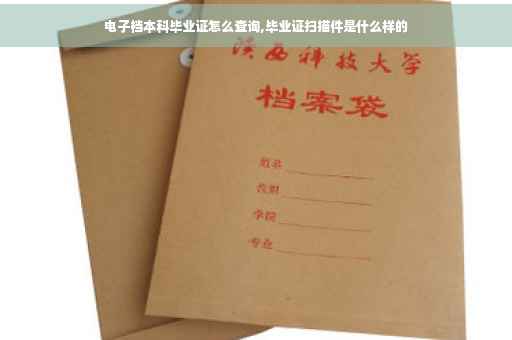 电子档本科毕业证怎么查询,毕业证扫描件是什么样的
陕西科技大学
档案袋
姓名
性别
学院
专业